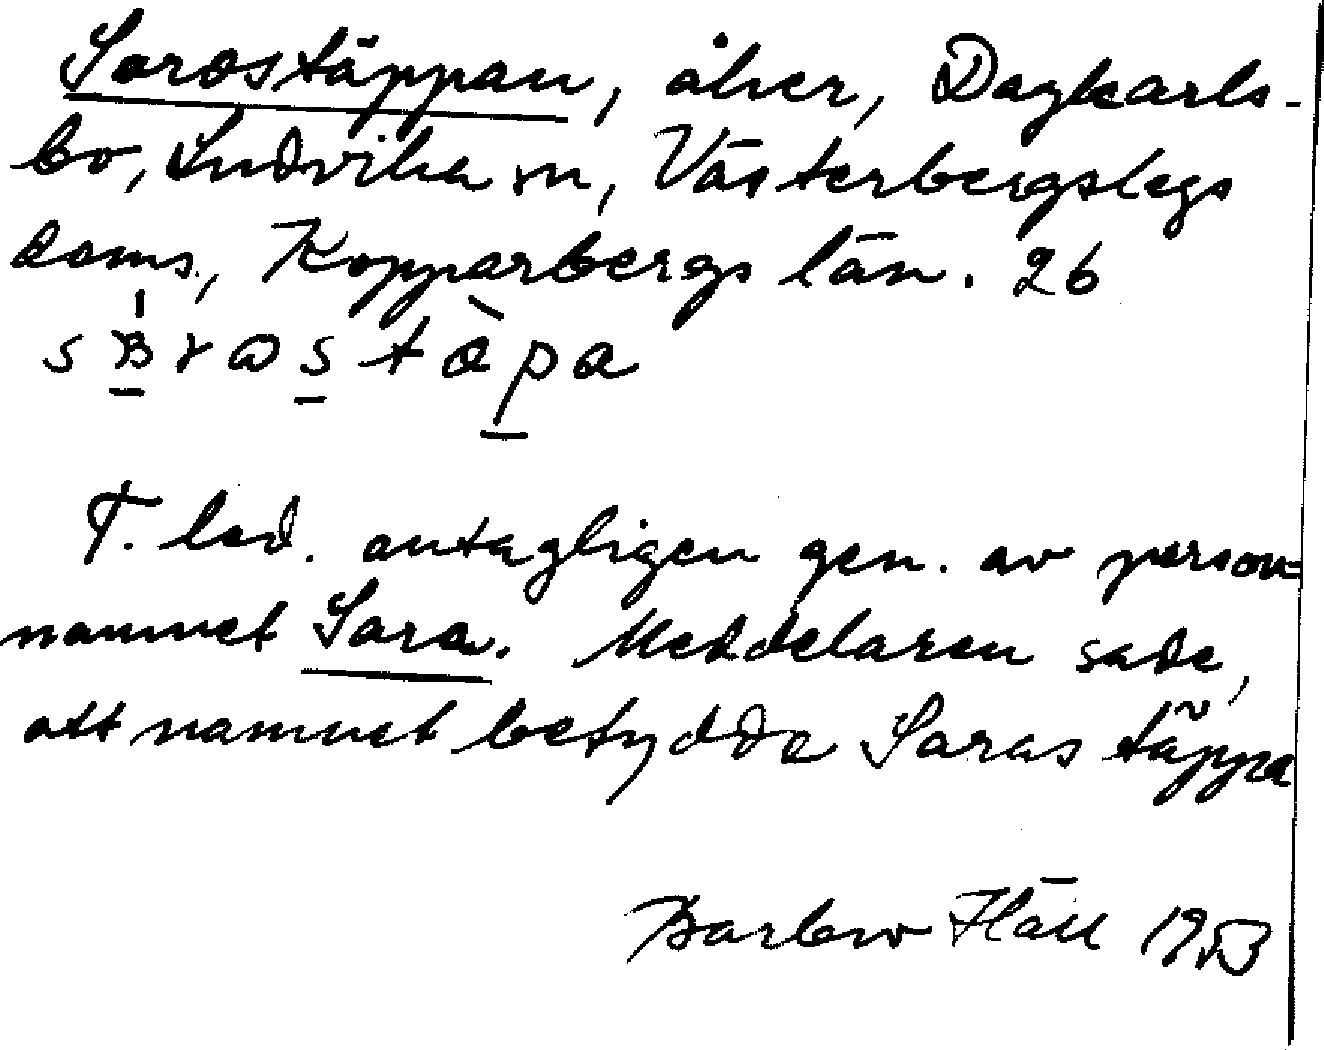 Sarostäppan, åker, Dagkarls-
bo, Ludvika sn, Västerbergslags
doms., Kopparbergs län. 26
F. led. antagligen gen. av person-
namnet Sara. Meddelaren sade,
att namnet betydde Saras täppa
Barbro Häll 1953